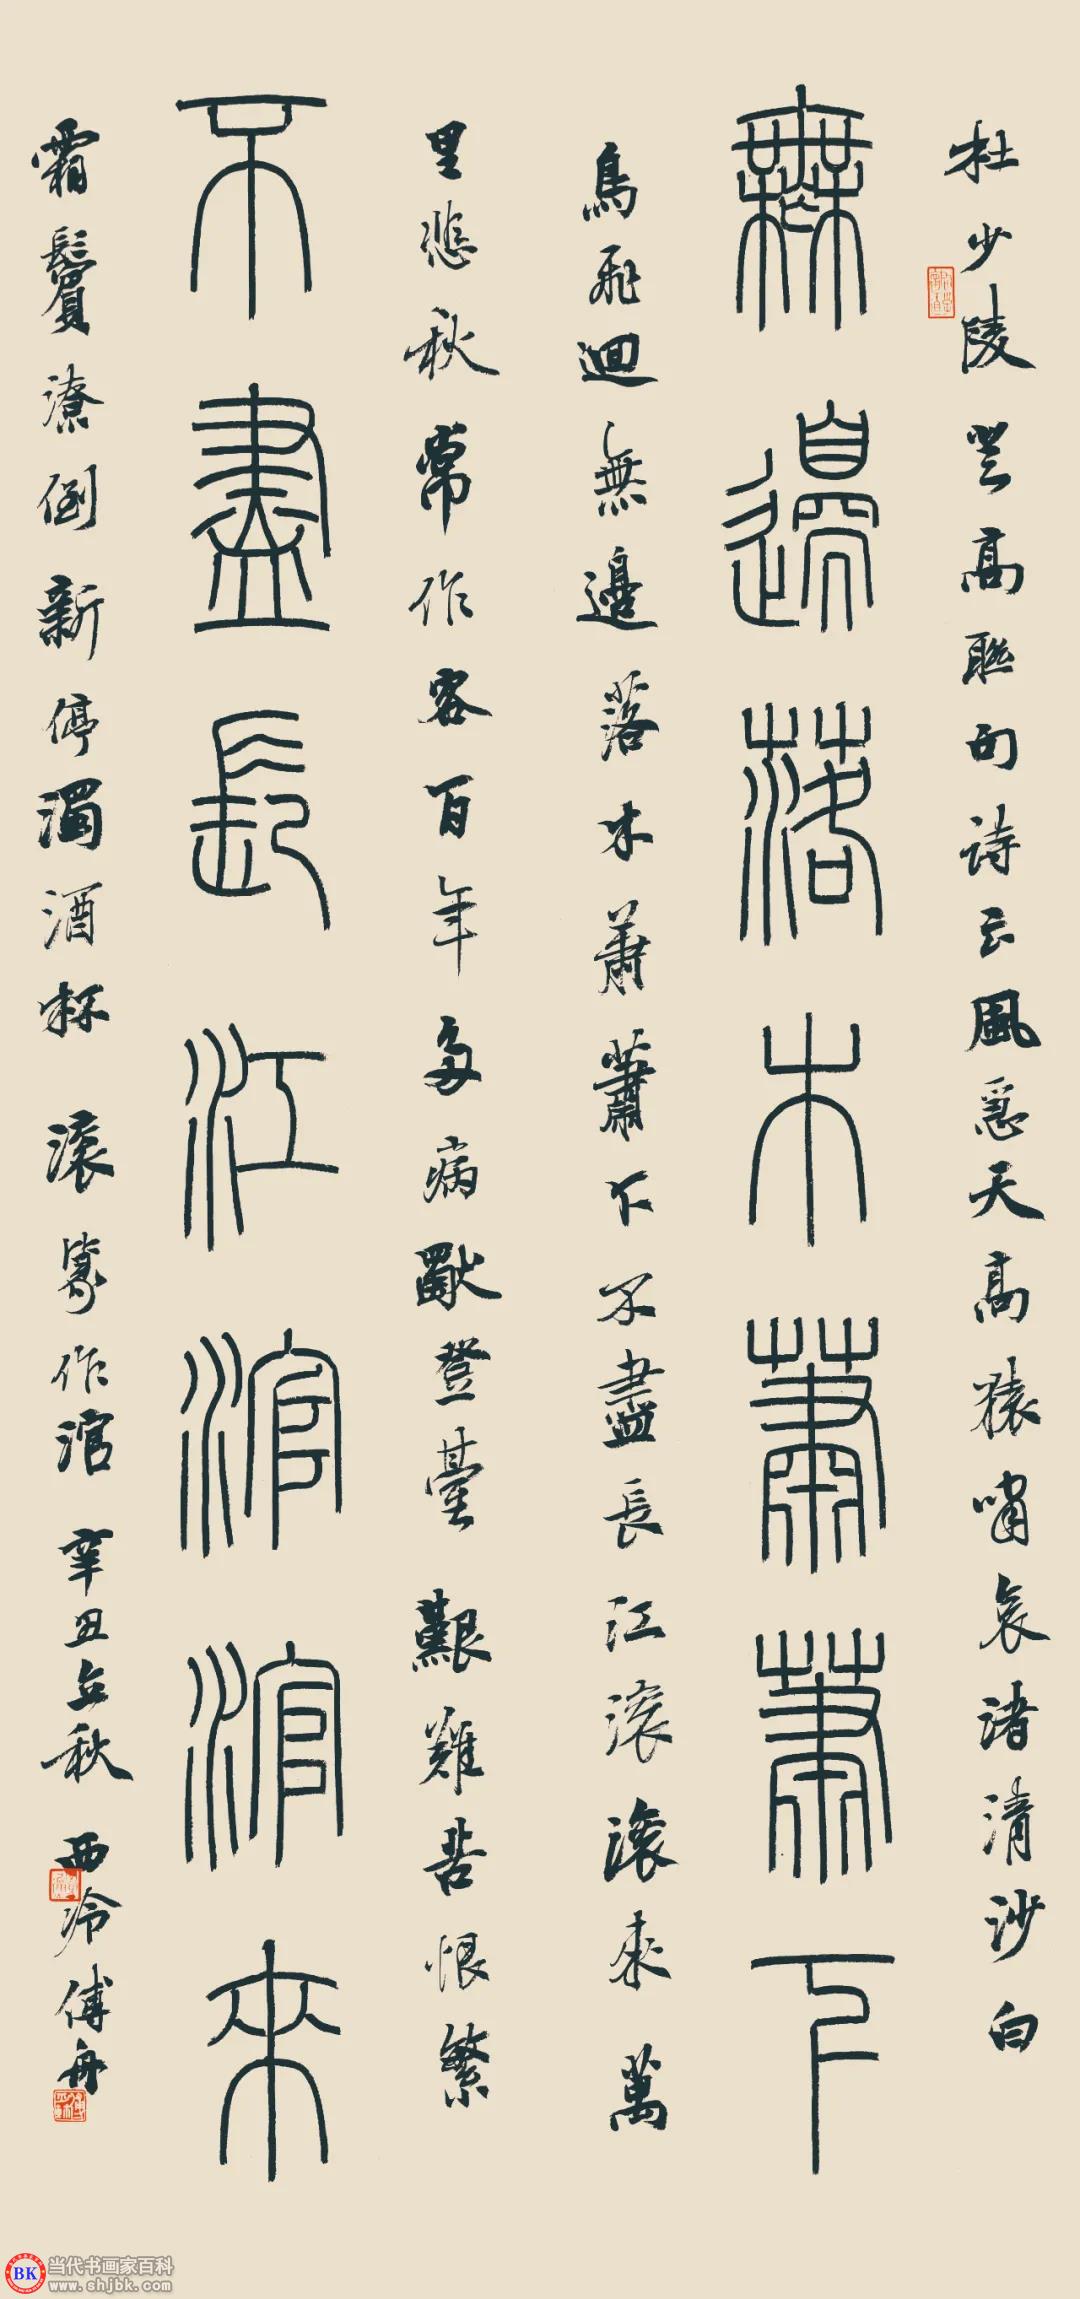 杜少陵登高聯句詩云風急天高猿嘯哀渚清沙白
無邊落木蕭蕭下
鳥飛迴無邊落木蕭蕭下不盡長江滾滾來萬
里悲秋常作客百年多病獨登臺艱難苦恨繁
不盡長江涫涫來
霜鬢潦倒新停濁酒杯 滾篆作涫 辛丑立秋 西泠傅舟
BK
当代书画家百科
www.shjbk.com